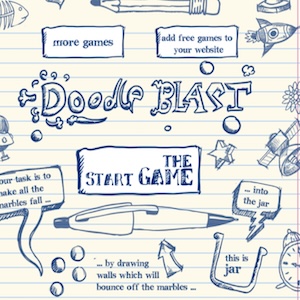 more games
add free games to
your website
Doodle BLAST
THE
START GAME
our task is to
make all the
marbles fall ...
... into
the jar
... by drawing
walls which will
bounce off the marbles ...
this is
jar